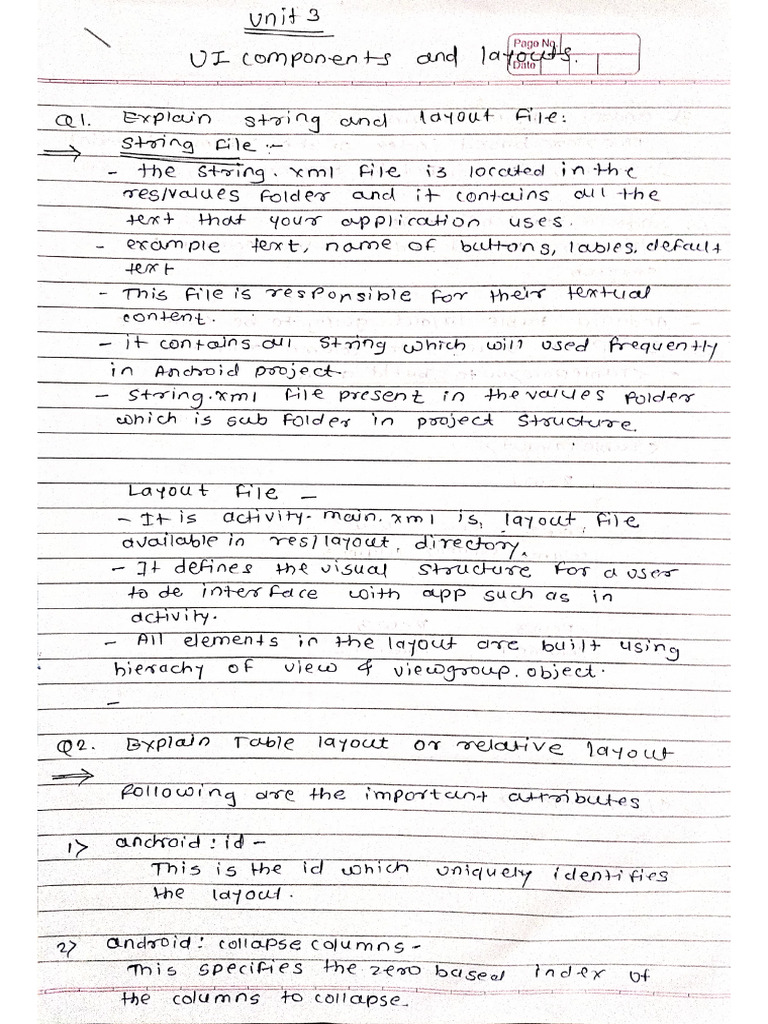 Unit 3
UI components and layouts.
Page No.
Date
Q1. Explain String and layout file:
⇒ String file :-
- the String. xml file is located in the
res/values folder and it contains all the
text that your application uses.
- example text, name of buttons, lables, default
text
- This file is responsible for their textual
content.
- it contains all string which will used frequently
in Android project.
- String.xml file present in the values folder
which is sub folder in project structure.
Layout file -
- It is activity. main. xml is, layout, file
available in res/layout, directory.
- It defines the visual structure for a user
to de interface with app such as in
activity.
- All elements in the layout are built using
hierachy of view & viewgroup. object.
-
Q2. Explain Table layout or relative layout
⇒
following are the important attributes
1) android : id -
This is the id which uniquely identifies
the layout.
2) android : collapse columns -
This specifies the zero based index of
the columns to collapse.